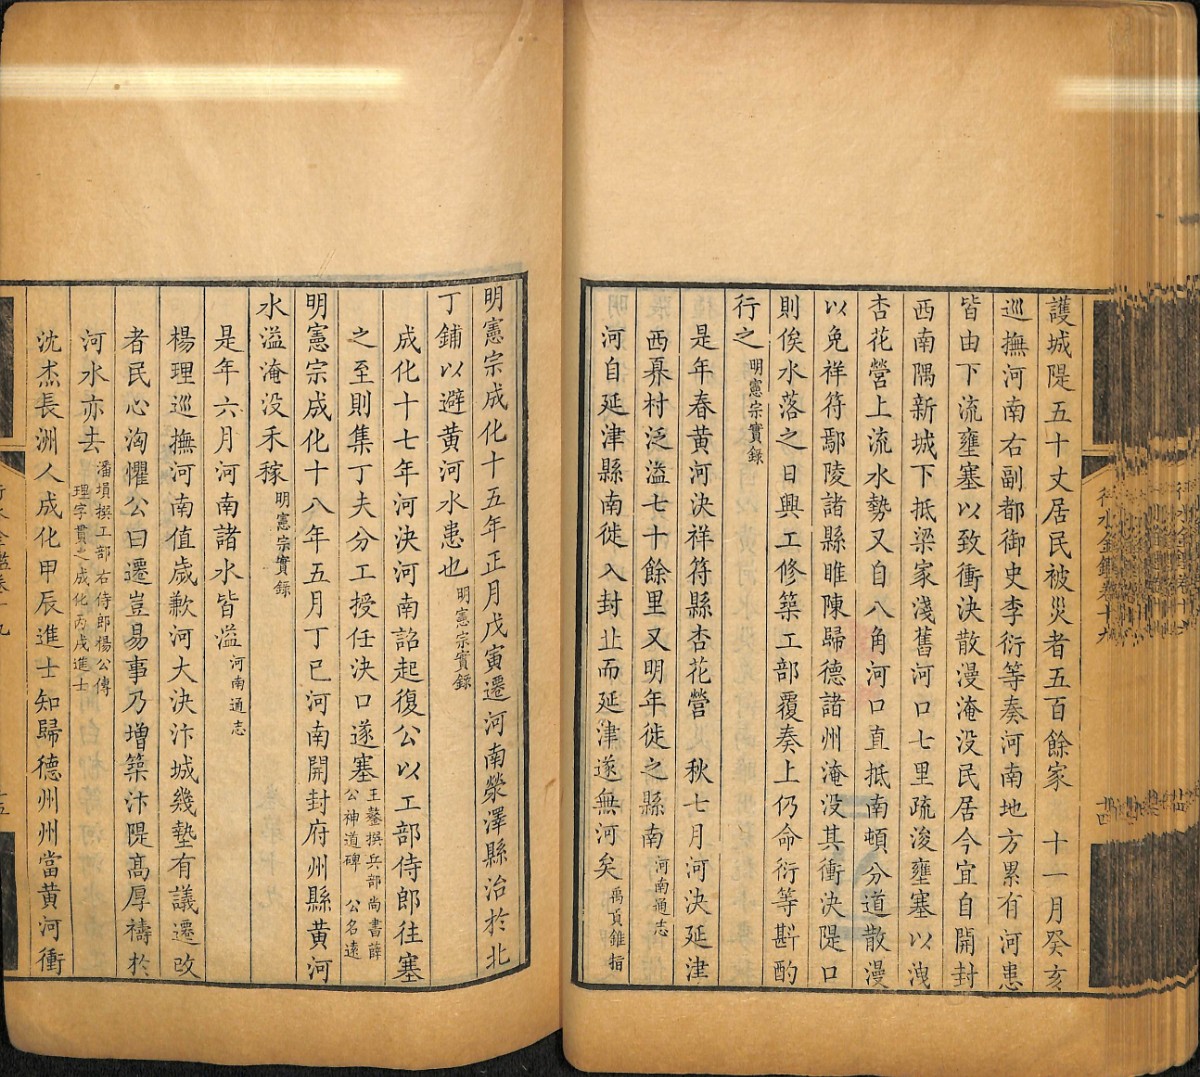 護城隄五十丈居民被災者五百餘家　十一月癸亥
巡撫河南右副都御史李衍等奏河南地方累有河患
皆由下流壅塞以致衝決散漫淹没民居今宜自開封
西南隅新城下抵梁家淺舊河口七里疏浚壅塞以洩
杏花營上流水勢又自八角河口直抵南頓分道散漫
以免祥符鄢陵諸縣睢陳歸德諸州淹没其衝決隄口
則俟水落之日興工修築工部覆奏上仍命衍等斟酌
行之明憲宗實錄
是年春黃河決祥符縣杏花營　秋七月河決延津
西奡村泛溢七十餘里又明年徙之縣南河南通志
河自延津縣南徙入封丘而延津遂無河矣禹貢錐指
明憲宗成化十五年正月戊寅遷河南滎澤縣治於北
丁鋪以避黃河水患也明憲宗實錄
成化十七年河決河南詔起復公以工部侍郎往塞
之至則集丁夫分工授任決口遂塞王鏊撰兵部尚書薛
公神道碑　公名遠
明憲宗成化十八年五月丁巳河南開封府州縣黃河
水溢淹没禾稼明憲宗實錄
是年六月河南諸水皆溢河南通志
楊理巡撫河南值歲歉河大決汴城幾墊有議遷改
者民心洶懼公曰遷豈易事乃增築汴隄高厚禱於
河水亦去潘塤撰工部右侍郎楊公傳
理字貫之成化丙戌進士
沈杰長洲人成化甲辰進士知歸德州州當黃河衝
行水金鑑卷十九
十四